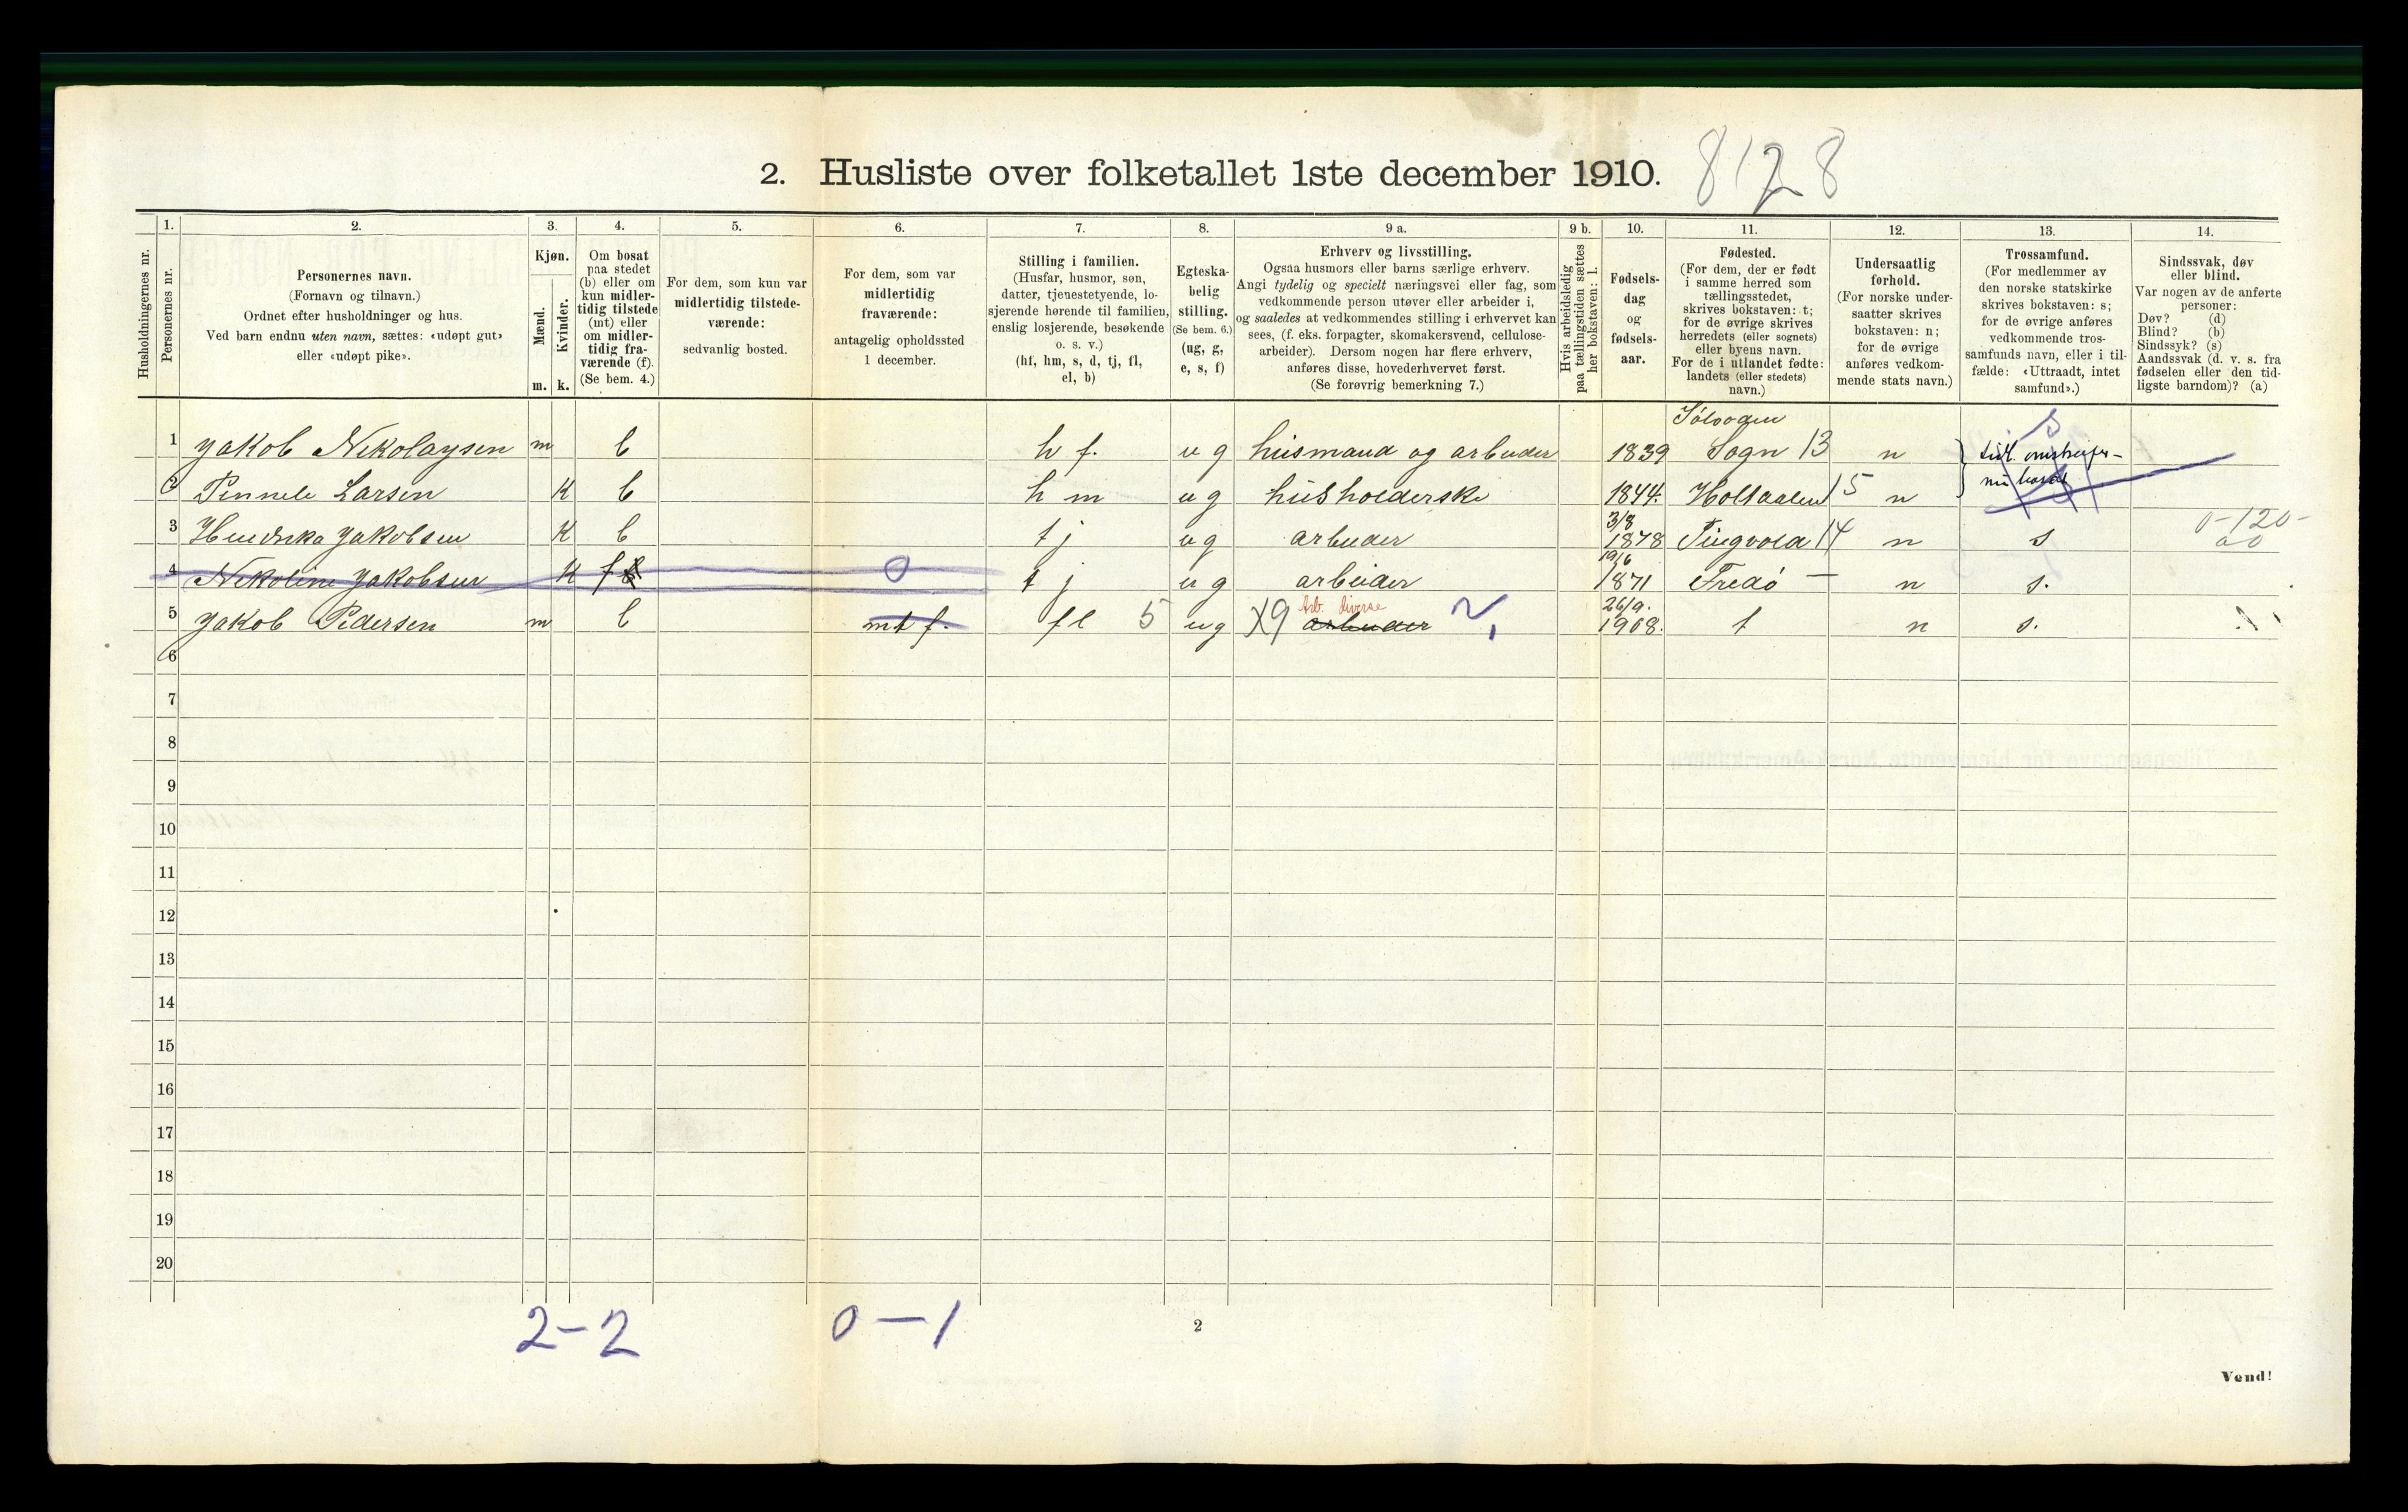 2. Husliste over folketallet 1ste december 1910. 8128
Husholdningernes nr.
1.
Personernes nr.
2.
Personernes navn.
(Fornavn og tilnavn.)
Ordnet efter husholdninger og hus.
Ved barn endnu uten navn, sættes: «udøpt gut»
eller «udøpt pike».
3.
Kjøn.
Mænd.
Kvinder.
m. k.
4.
Om bosat
paa stedet
(b) eller om
kun midler-
tidig tilstede
(mt) eller
om midler-
tidig fra-
værende (f).
(Se bem. 4.)
5.
For dem, som kun var
midlertidig tilstede-
værende:
sedvanlig bosted.
6.
For dem, som var
midlertidig
fraværende:
antagelig opholdssted
1 december.
7.
Stilling i familien.
(Husfar, husmor, søn,
datter, tjenestetyende, lo-
sjerende hørende til familien,
enslig losjerende, besøkende
o. s. v.)
(hf, hm, s, d, tj, fl,
el, b)
8.
Egteska-
belig
stilling.
(Se bem. 6.)
(ug, g,
e, s, f)
9 a.
Erhverv og livsstilling.
Ogsaa husmors eller barns særlige erhverv.
Angi tydelig og specielt næringsvei eller fag, som
vedkommende person utøver eller arbeider i,
og saaledes at vedkommendes stilling i erhvervet kan
sees, (f. eks. forpagter, skomakersvend, cellulose-
arbeider). Dersom nogen har flere erhverv,
anføres disse, hovederhvervet først.
(Se forøvrig bemerkning 7.)
9 b.
Hvis arbeidsledig
paa tællingstiden sættes
her bokstaven: l.
10.
Fødsels-
dag
og
fødsels-
aar.
11.
Fødested.
(For dem, der er født
i samme herred som
tællingsstedet,
skrives bokstaven: t;
for de øvrige skrives
herredets (eller sognets)
eller byens navn.
For de i utlandet fødte:
landets (eller stedets)
navn.)
12.
Undersaatlig
forhold.
(For norske under-
saatter skrives
bokstaven: n;
for de øvrige
anføres vedkom-
mende stats navn.)
13.
Trossamfund.
(For medlemmer av
den norske statskirke
skrives bokstaven: s;
for de øvrige anføres
vedkommende tros-
samfunds navn, eller i til-
fælde: «Uttraadt, intet
samfund».)
14.
Sindssvak, døv
eller blind.
Var nogen av de anførte
personer:
Døv? (d)
Blind? (b)
Sindssyk? (s)
Aandssvak (d. v. s. fra
fødselen eller den tid-
ligste barndom)? (a)
1 Jakob Nikolaysen m b h f. u g husmand og arbeider 1839 Sogn 13 n s
2 Larsen K b h m u g husholderske 1844. Holtaalen 15 n
3 Jakobsen K b t j u g arbeider 3/8 1878 Tingvold 14 n s 0-120-
4 Nikoline Jakobsen K f 0 t j u g arbeider 19/6 1871 Fredø — n s.
5 Jakob Pedersen m b mt f. fl 5 u g X9 Arb. diverse arbeider 26/9. 1908. t n s.
6
7
8
9
10
11
12
13
14
15
16
17
18
19
20
2-2 0-1
2
Vend!